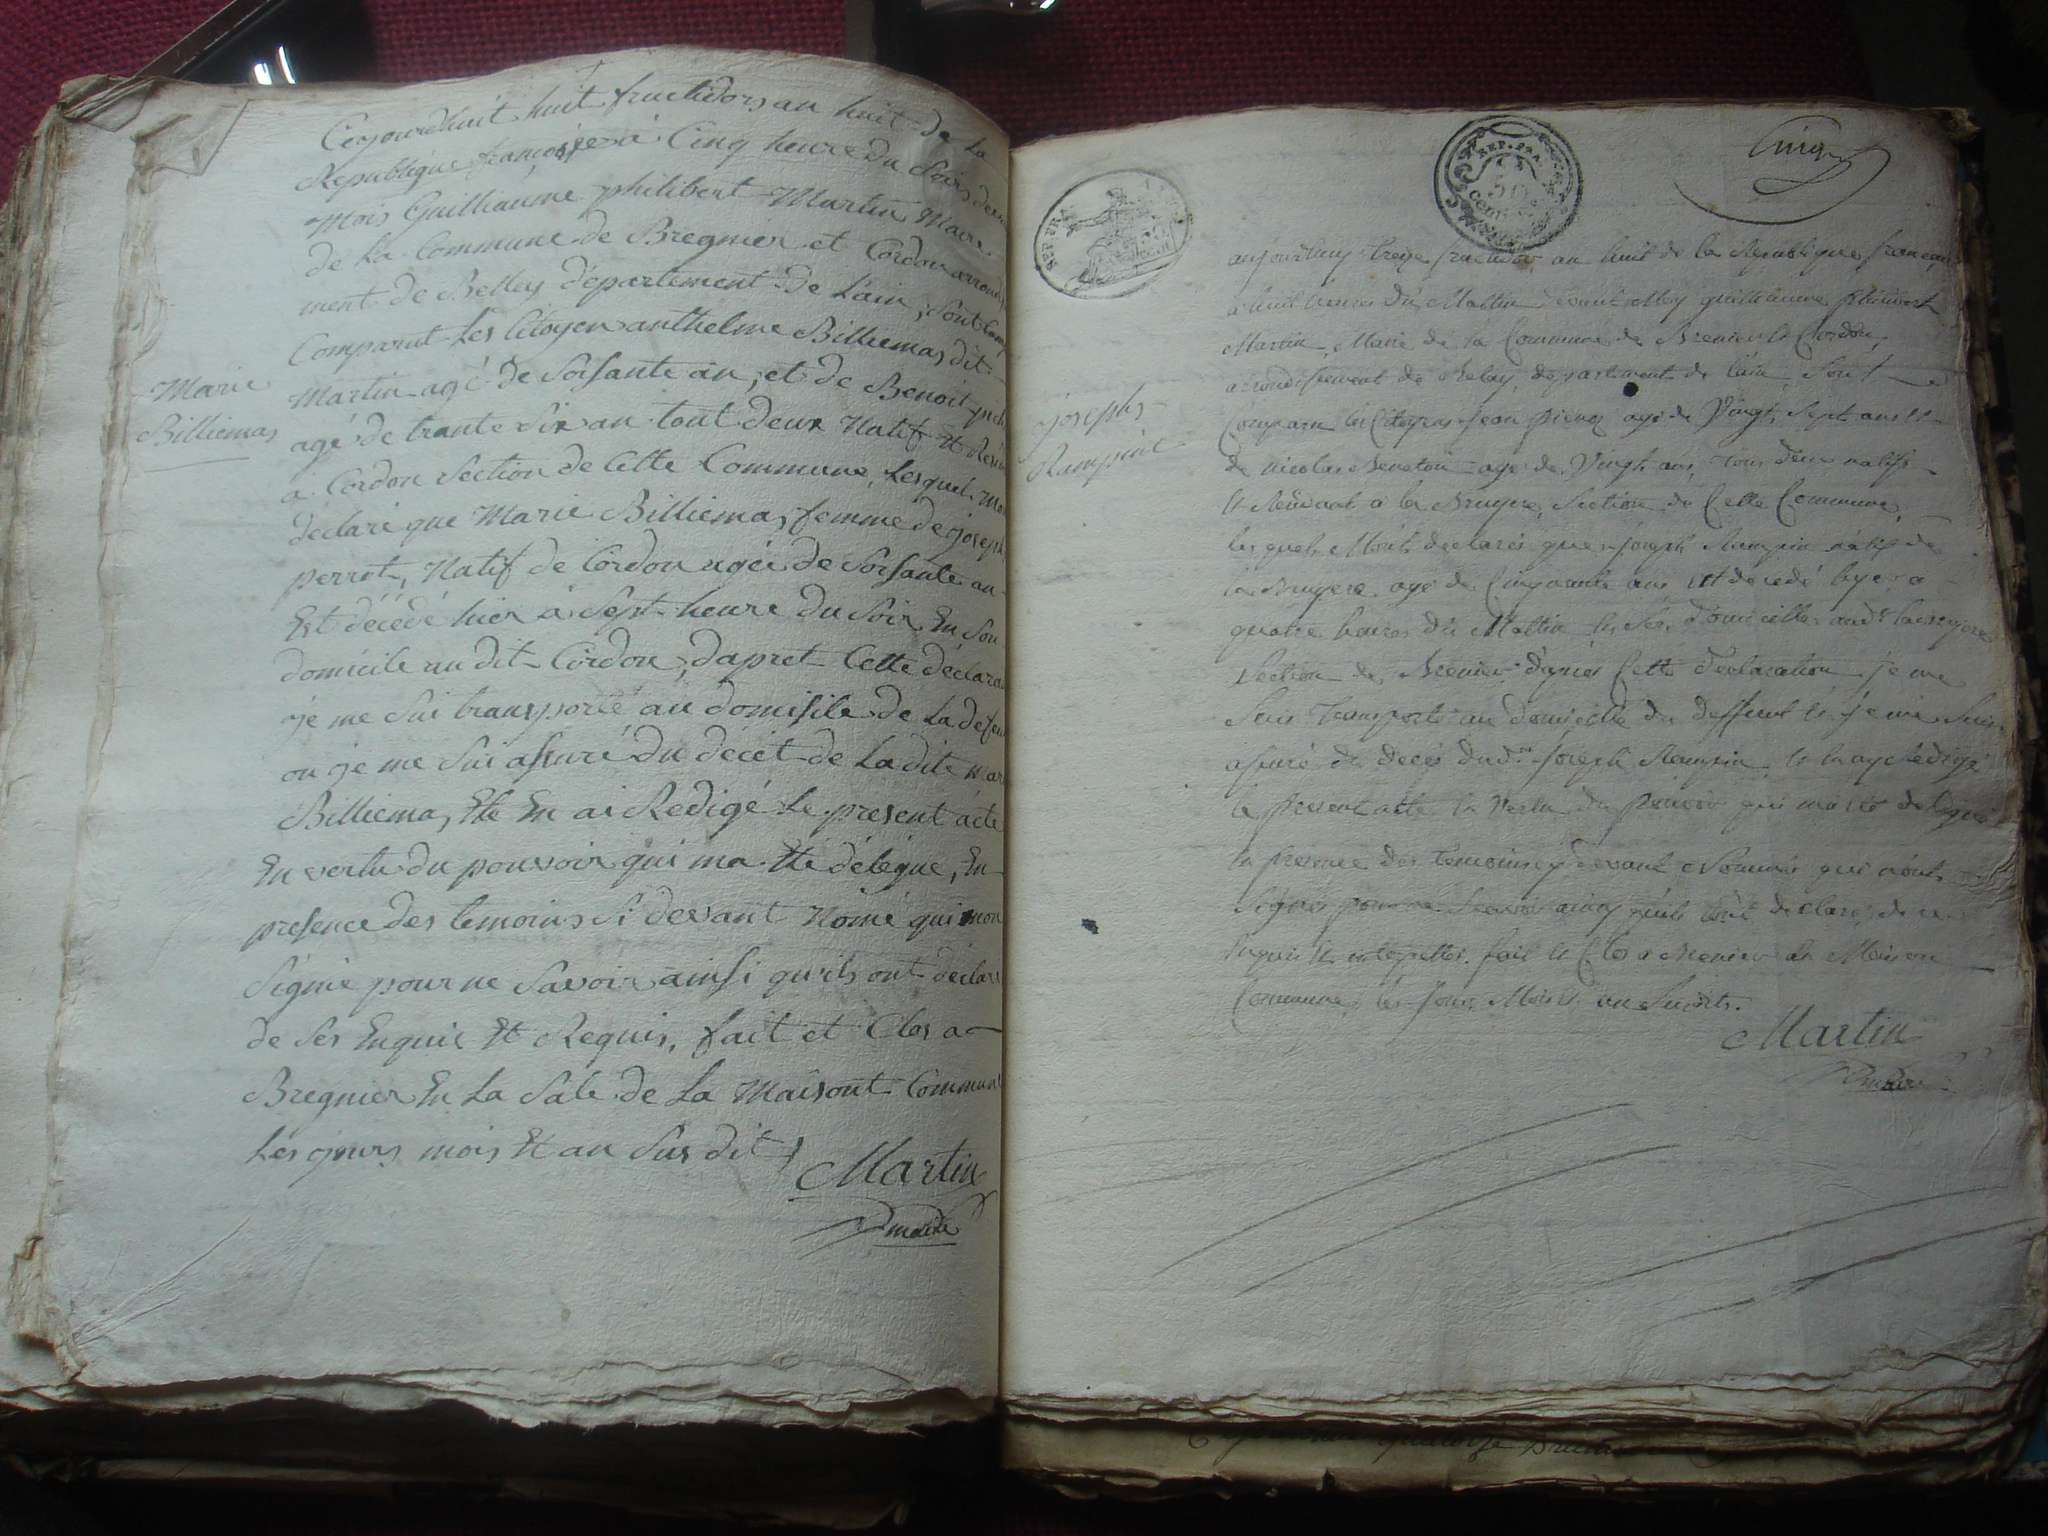 Ceyourdhuit huit fructidors an huit de la
Republique françoise à Cinq heure du Soir devn
mois Guilliaume philibert Martin Maire
de La Commune de Bregnier et Cordon arrondi
ment de Belley département de Lain, Sont Com
Comparut Les Citoyen anthelme Billiemas dit
Martin agé de Soisante an, et de Benoit
agé de trante Six an tout deux Natif Et Resi
à Cordon Section de Cette Commune, Lesquel mon
déclaré que Marie Billiemas femme de joseph
perrot, Natif de Cordon agée de Soisante an
Est décédé hier à Sept heure du Soir En Son
domicile au dit Cordon, dapret Cette déclara
je me Sui transporté au domisile de La defen
ou je me Sui assuré du décét de La dite mar
Billiemas, Ete En ai Redigé Le present acte
En vertu du pouvoir qui ma Eté délégué, En
presence des temoins Si devant Nomé qui mon
Signié pour ne Savoir ainsi quils ont déclaré
de Ses Enquie Et Requis, fait et Clos a
Bregnier En La Sale de La Maisont Commune
Les jours mois Et an Sus dit
Martin
maire
Marie
Billiemas
Cinq
REP. FRA.
50
CENT
REP. FRA
joseph
Rampint
aujourdhuy treize fructidor an huit de la Republique francaise
a huit heures du Mattin devant Moy guillieaume philibert
Martin, Maire de la Commune de Brenier et Cordon,
arrondissement de Beley, departement de lain, Sont
Comparu les Citoyens Jean agé de Vingt Sept ans Et
de nicolas Beneton agé de Vingt ans, tous deux natifs
Et Residant a la Bruyere, Section de Cette Commune,
lesquels Mont declarés que joseph Rampin natif de
la Bruyere agé de Cinquante ans est decedé hyer a
quatre heures du Mattin En Son domicille aud. labruyere
Section de Brenier d'apres Cette declaration je me
Suis transporté au domicille du deffunt Et je me Suis
assuré du deces dud. Joseph Rampin, Et en ay Redigé
le present acte En Vertu du pouvoir qui ma eté delegué
En presence des temoins cy devant Nommés qui n'ont
Signés pour ne Scavoir ainsy quils Ont declaré de ce
Enquis Et interpellés. fait Et Clos a Brenier En Maison
Commune, les Jour, Mois Et an Susdits.
Martin
maire